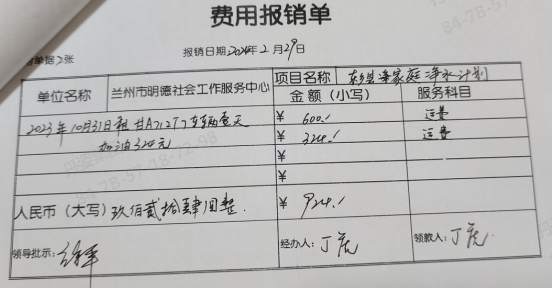 费用报销单
销单据2张
报销日期2024年2月29日
单位名称 兰州市明德社会工作服务中心 项目名称 东乡县幸家庭净水计划
金额(小写) 服务科目
2023年10月31日租甘A712T7车辆壹天 ¥ 600./ 运费
加油324元 ¥ 324./ 运费
¥
¥
人民币(大写)玖佰贰拾肆圆整. ¥ 924./
领导批示: 经办人:丁 领款人:丁